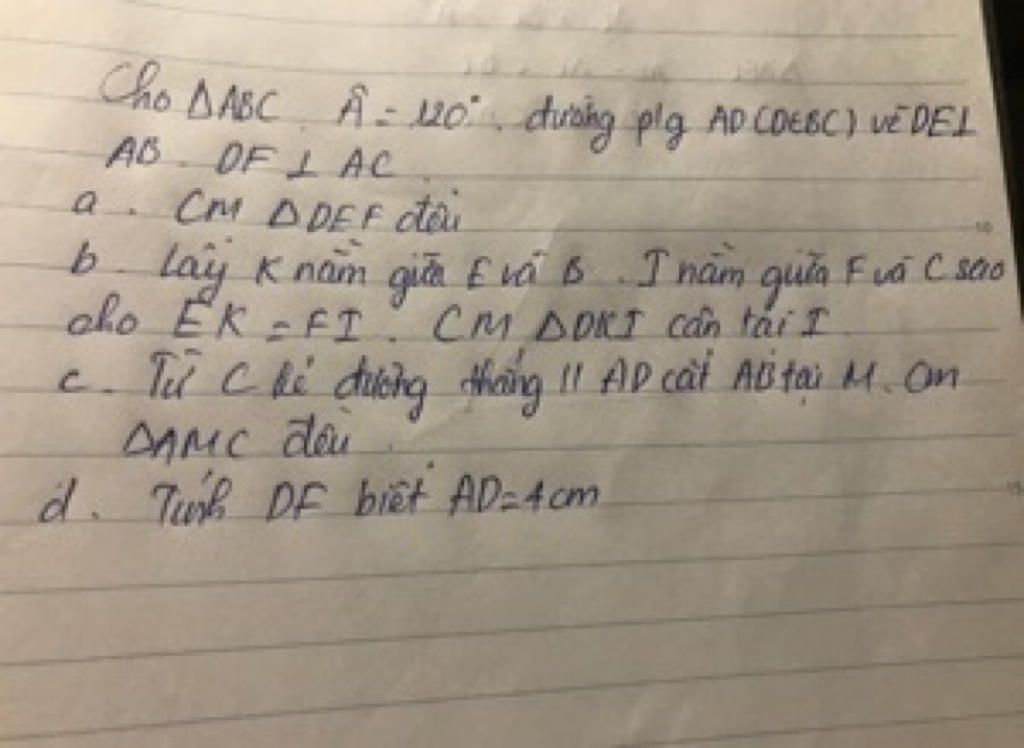 Cho ΔABC. Â = 120°. đường p/g AD (D∈BC) vẽ DE⊥
AB. DF ⊥ AC.
a. CM ΔDEF đều
b. Lấy K nằm giữa E và B. I nằm giữa F và C sao
cho EK = FI. CM ΔDKI cân tại I.
c. Từ C kẻ đường thẳng // AD cắt AB tại M. Cm
ΔAMC đều.
d. Tính DF biết AD=4cm